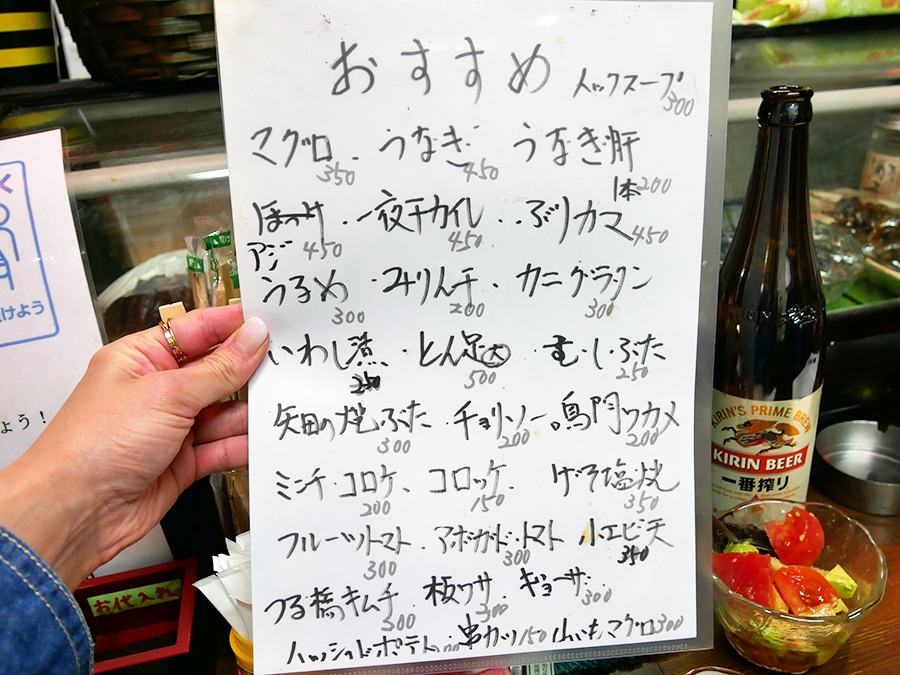 おすすめ トックスープ
300
マグロ・うなぎ・うなぎ肝
350 450 1本200
ほっけ・一夜干カイレ・ぶりカマ
アジ 450 450 450
うるめ・みりん干・カニグラタン
300 200 300
いわし煮・とん足大・むしぶた
350 500 250
矢田の焼ぶた・チョリソー・鳴門ワカメ
300 200 200
ミンチコロケ・コロッケ・げそ塩焼
200 150 350
フルーツトマト・アボガドトマト 小エビ天
300 300 350
つる橋キムチ・板ワサ・ギョーザ
300 300 300
ハッシュドポテト・串カツ150 山いもマグロ300
KIRIN'S PRIME BREW
KIRIN BEER
一番搾り
お代入れ
けよう
ょう！